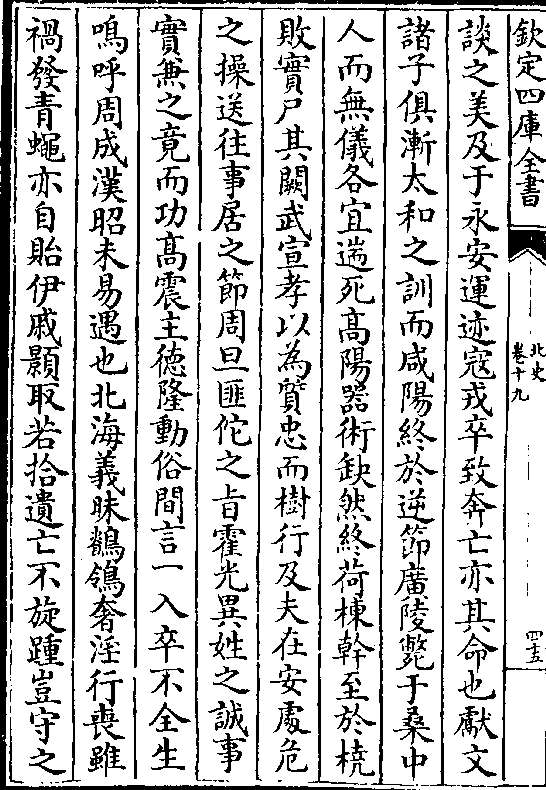 欽定四庫全書
北史
卷十九
四五
談之美及于永安運迹寇戎卒致奔亡亦其命也獻文
諸子俱漸太和之訓而咸陽終於逆節廣陵斃于桑中
人而無儀各宜遄死髙陽器術缺然終荷棟幹至於橈
敗實尸其闕武宣孝以為質忠而樹行及夫在安處危
之操送往事居之節周旦匪佗之㫖霍光異姓之誠事
實兼之竟而功髙震主德隆動俗間言一入卒不全生
嗚呼周成漢昭未易遇也北海義昧鶺鴒奢淫行喪雖
禍發青蠅亦自貽伊戚顥取若拾遺亡不旋踵豈守之